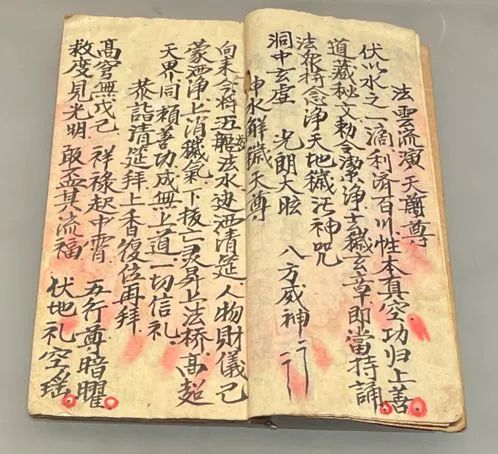 法雲流演 天尊尊
伏以水之一滴利済百川性本真空功归上善
道藏秘文勅令潔淨去穢玄章即當持誦
法衆持念淨天地穢神咒
洞中玄虚 光朗大眩 八方威神
水解穢天尊
向来令将五龍法水洒清筵人物財儀已
蒙洒淨上消穢氣下拔亡灵昇上法桥高超
天界同賴善功成無上道一切信礼
恭詣清筵拜上香復位再拜
高穹無戊己 祥禄赴中霄 五行尊暗曜
救度見光明 敢其流福 伏地礼空瑶